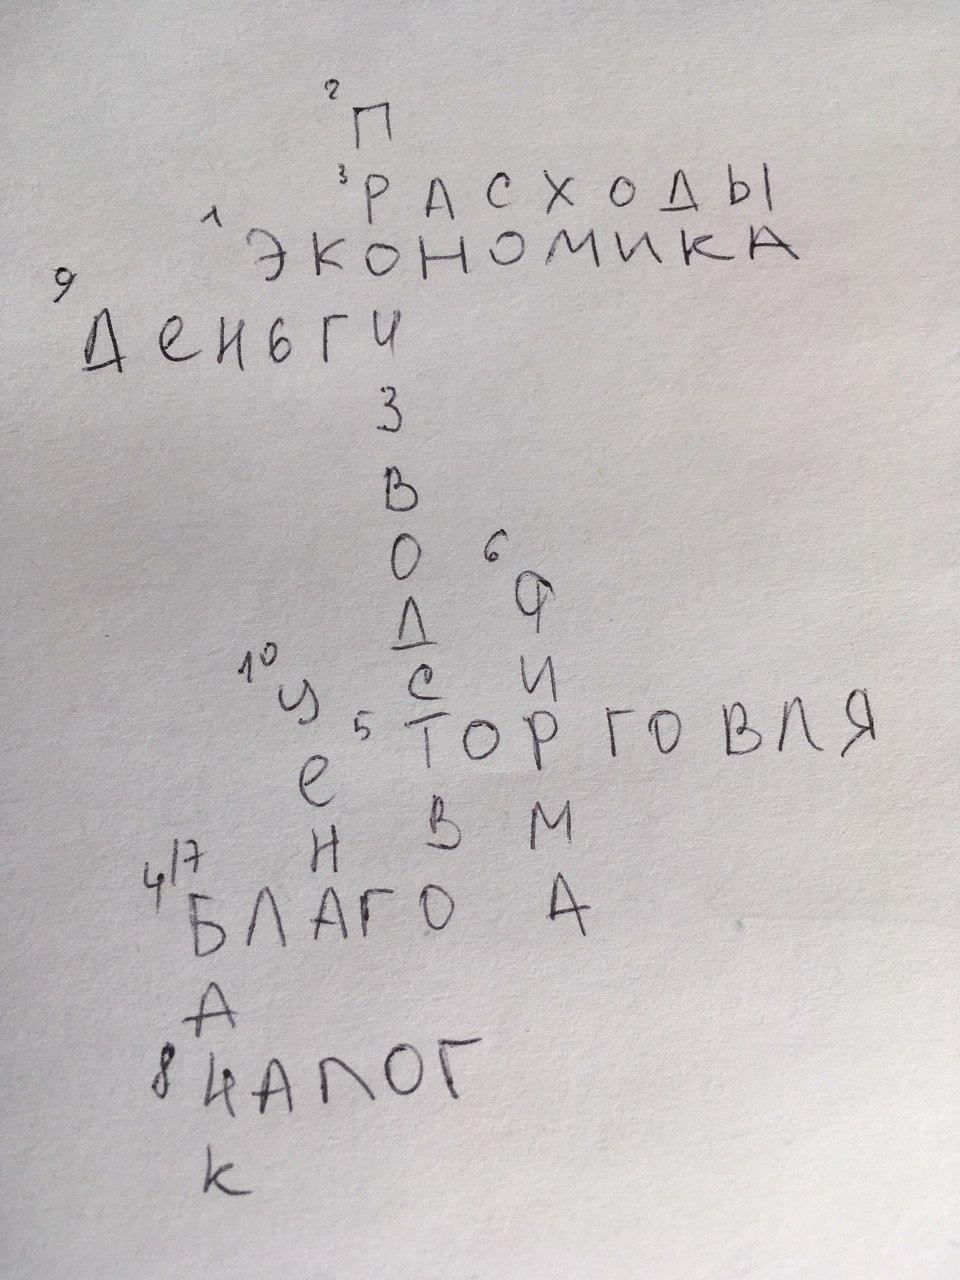 2
П
3 РАСХОДЫ
1 ЭКОНОМИКА
9
ДЕНЬГИ
З
В
О 6
Д Ф
10 Ц С И
5 ТОРГОВЛЯ
Е
Н В М
4/7
БЛАГО А
А
8 НАЛОГ
К